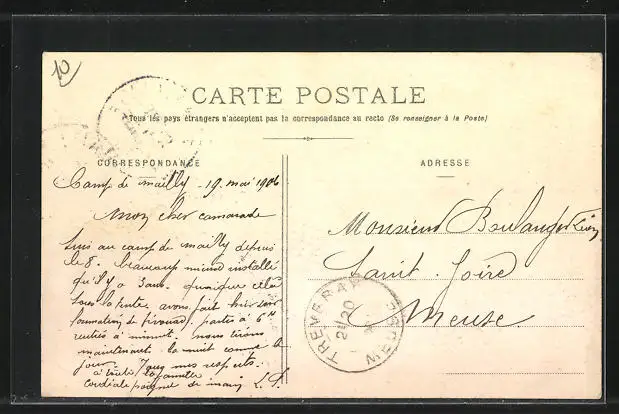 10
CARTE POSTALE
Tous les pays étrangers n'acceptent pas la correspondance au recto (Se renseigner à la Poste)
CORRESPONDANCE
ADRESSE
Camp de mailly - 19 mai 1906
Mon cher camarade
suis au camp de mailly depuis
le 8. beaucoup mieux installé
qu'il y a 3 ans. quoique cela
sous la tente. avons fait hier une
formation de bivouac. partis à 6h
rentrés à minuit. nous tirons
maintenant la nuit comme le
jour. mes respects
à toute la famille
cordiale poignée de main L.
Monsieur Boulanger Léon
Saint. Joire
Meuse.
TREVERAY
MEUSE
20